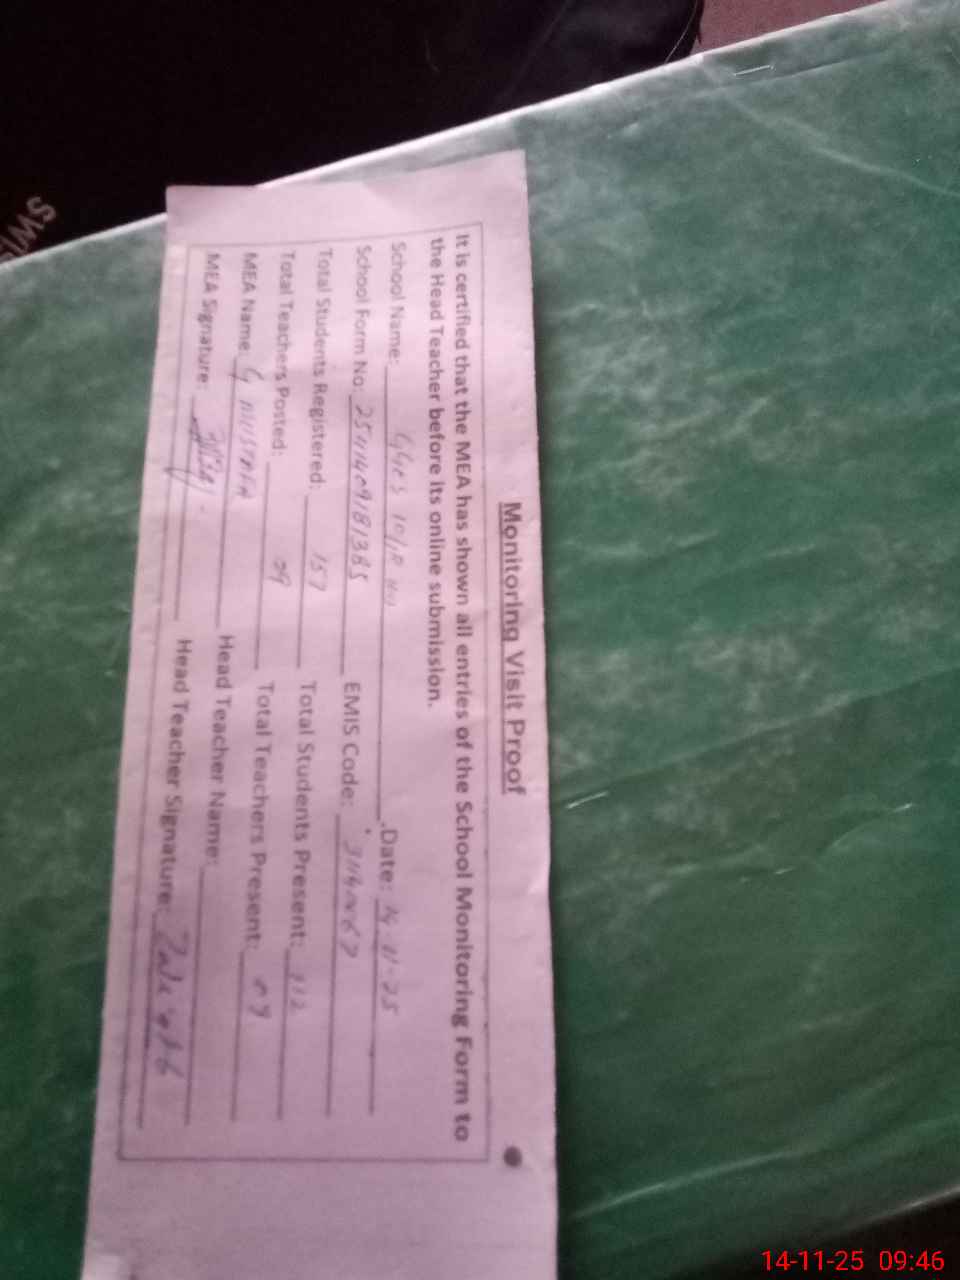 Monitoring Visit Proof
It is certified that the MEA has shown all entries of the School Monitoring Form to
the Head Teacher before its online submission.
School Name: Date: 14-11-25
School Form No: EMIS Code:
Total Students Registered: 157 Total Students Present: 112
Total Teachers Posted: 09 Total Teachers Present: 09
MEA Name: G MUSTAFA Head Teacher Name:
MEA Signature: Head Teacher Signature:
14-11-25 09:46